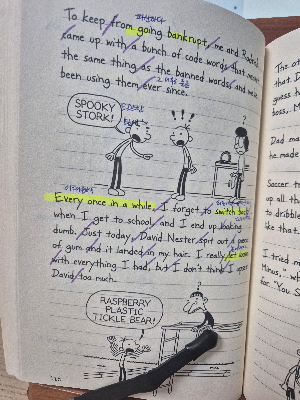 To keep from going bankrupt, me and Rodrick
came up with a bunch of code words that meant
the same thing as the banned words, and we've
been using them ever since.
SPOOKY
STORK!
! !
Every once in a while, I forget to switch back
when I get to school, and I end up looking
dumb. Just today, David Nester spit out a piece
of gum and it landed in my hair. I really let loose
with everything I had, but I don't think I upset
David too much.
RASPBERRY
PLASTIC
TICKLE BEAR!
?
The ot
that D
guess h
boss.
Dad ma
he made
Soccer
up all th
to dribble
Star ex
I tried m
Minus,"
for "You S